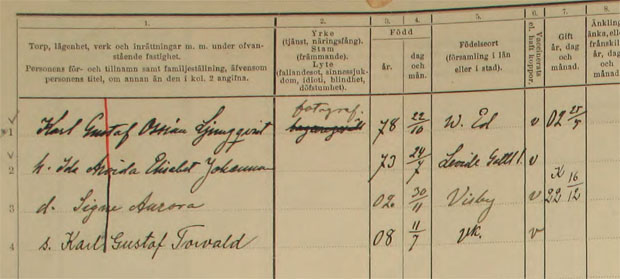 1. 2. 3. 4. 5. 6. 7. 8.
Torp, lägenhet, verk och inrättningar m. m. under ofvanstående fastighet.
Personens för- och tillnamn samt familjeställning, äfvensom personens titel, om annan än den i kol. 2 angifna.
Yrke
(tjänst, näringsfång).
Stam
(främmande).
Lyte
(fallandesot, sinnessjukdom, idioti, blindhet, döfstumhet).
Född
år.
dag och mån.
Födelseort
(församling i län eller i stad).
Vaccinerats el. haft koppor.
Gift
år, dag och månad.
Änkling
änka, eller
frånskil
år, dag
månad.
fotograf.
1 Karl Gustaf Ossian Ljungqvist 78 22/10 W. Ed v 02 25/5
2 h. Ida Alvida Elisabet Johanna 73 24/7 v
3 d. Signe Aurora 02 30/11 Visby v K 22 16/12
4 s. Karl Gustaf Torvald 08 11/7 v